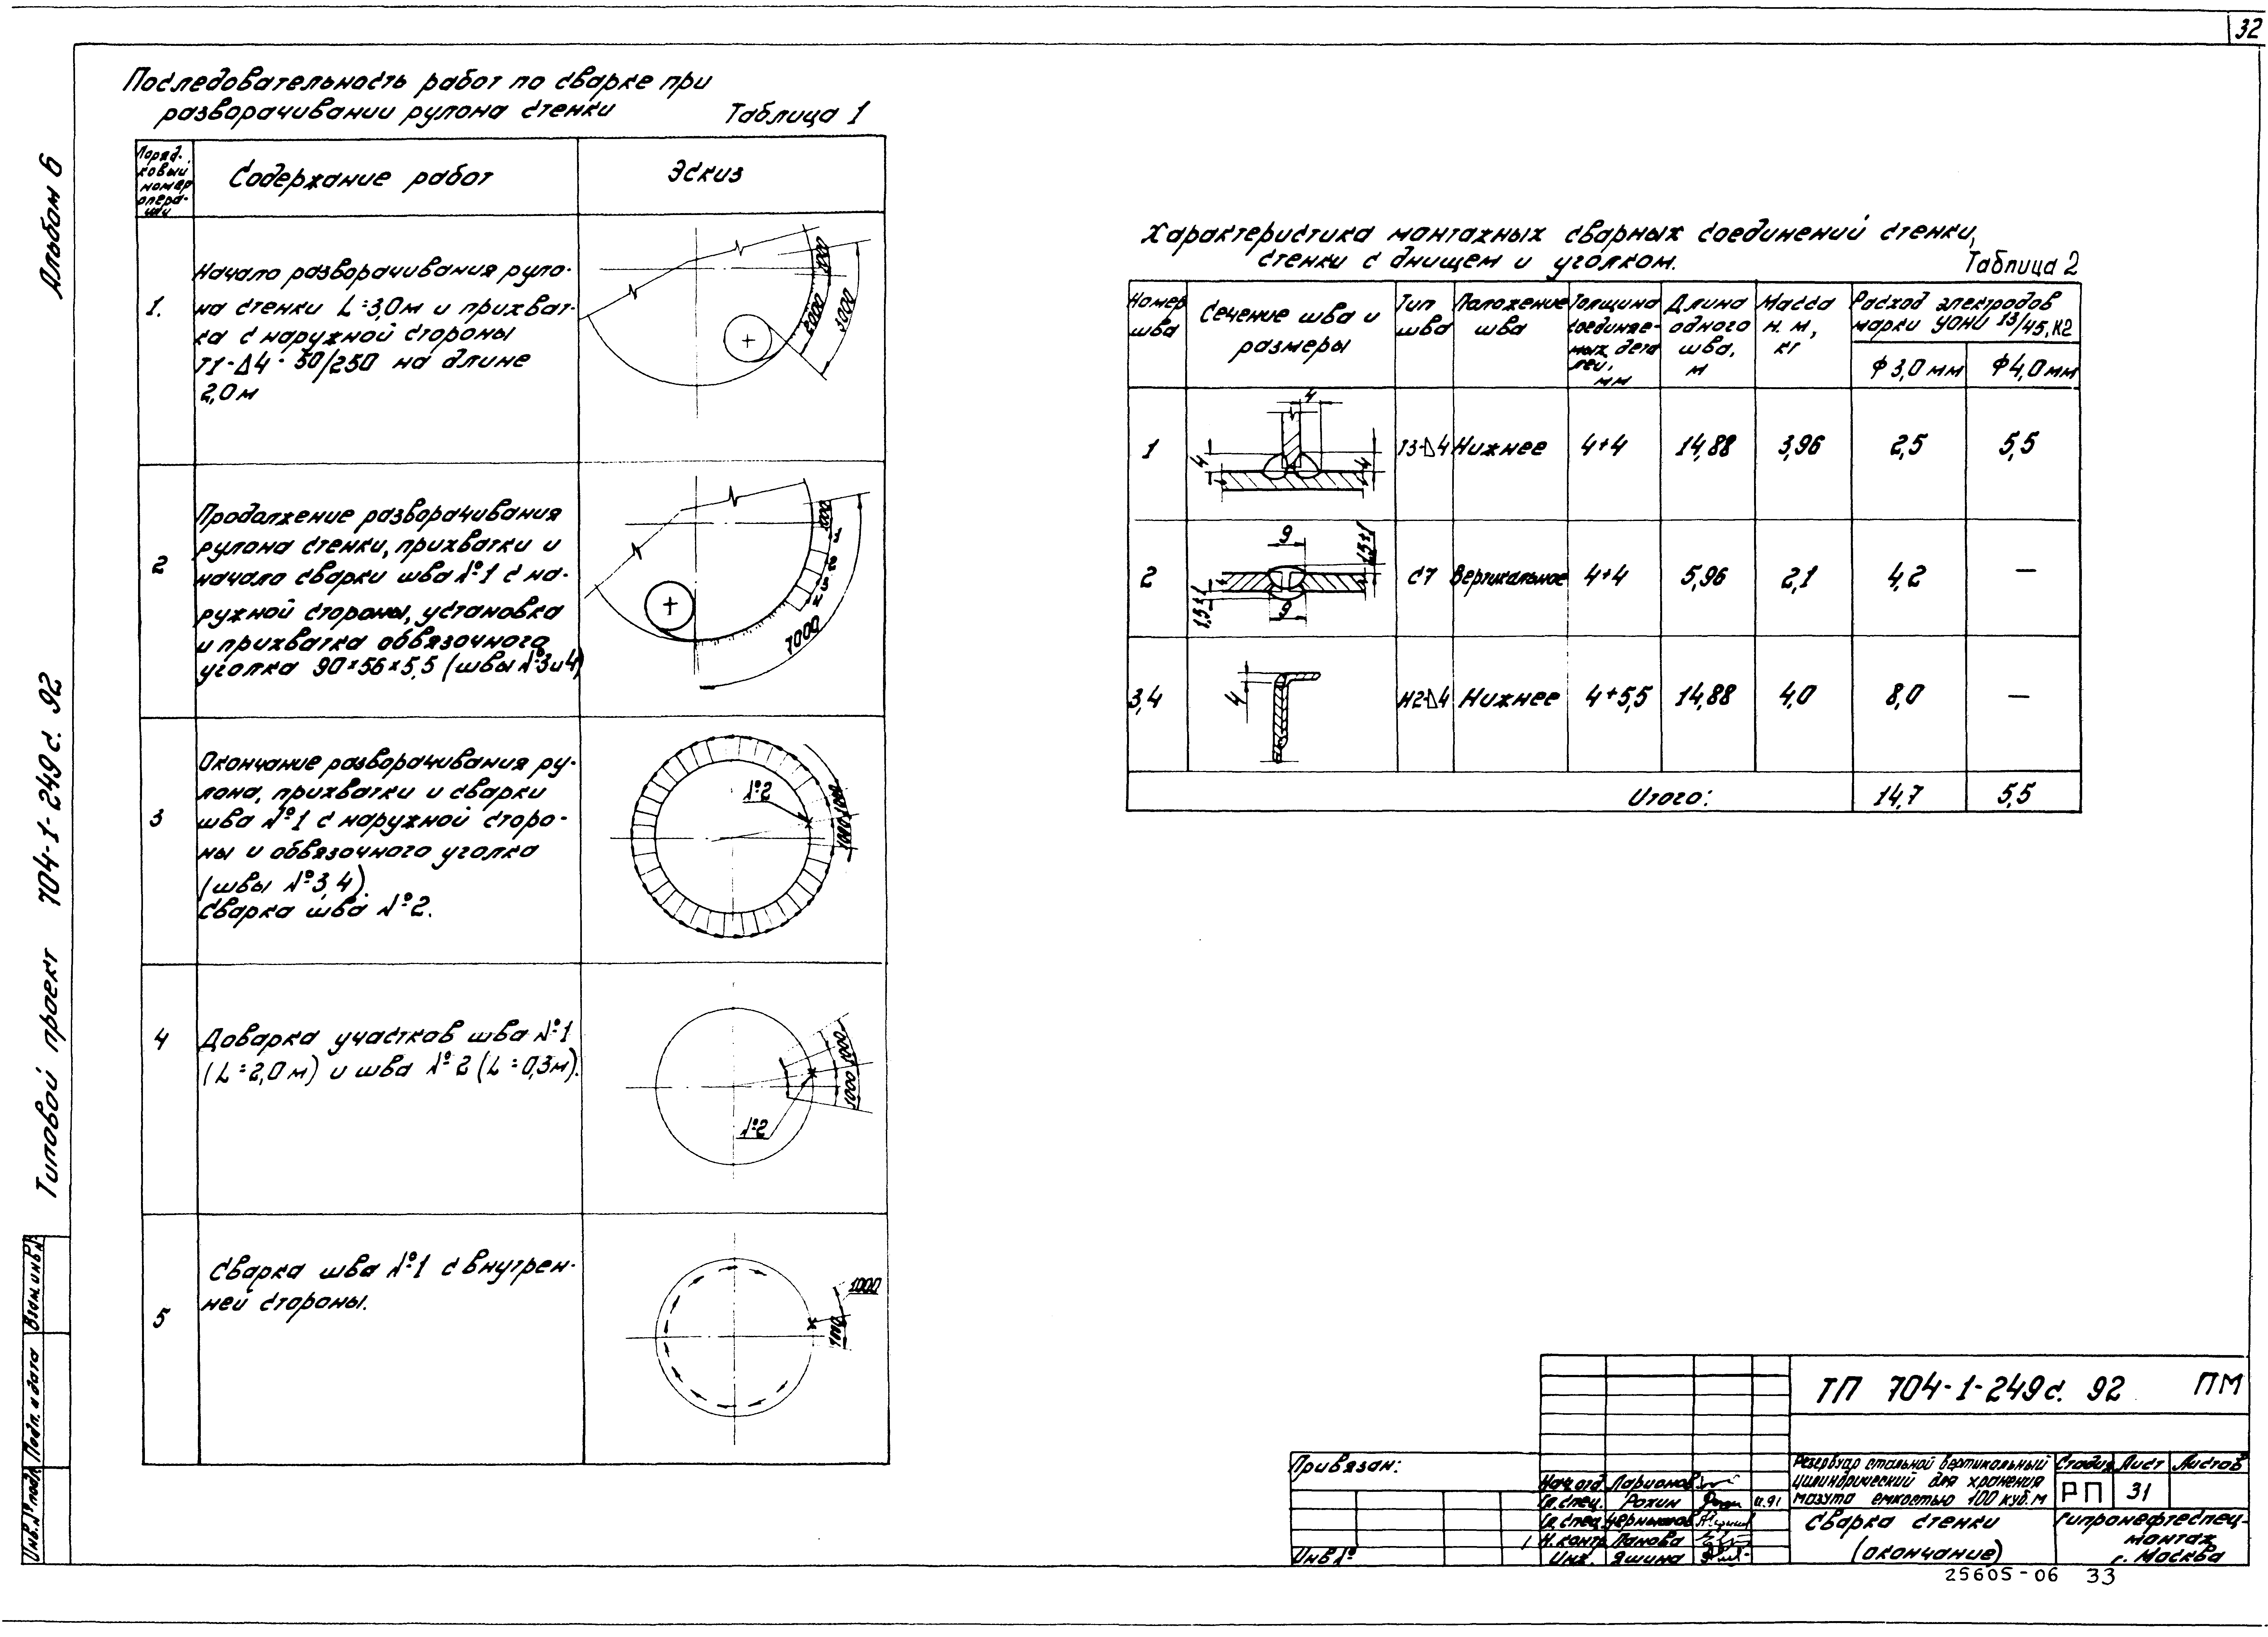 32
Альбом 6
Типовой проект 704-1-249с. 92
Последовательность работ по сварке при
разворачивании рулона стенки
Таблица 1
Поряд-
ковый
номер
опера-
ции
Содержание работ
Эскиз
1.
Начало разворачивания руло-
на стенки L=3,0м и прихват-
ка с наружной стороны
Т1-Δ4-50/250 на длине
2,0м
1000
2000
3000
2
Продолжение разворачивания
рулона стенки, прихватки и
начало сварки шва №1 с на-
ружной стороны, установка
и прихватка обвязочного
уголка 90×56×5,5 (швы №3и4)
1000
7000
3
Окончание разворачивания ру-
лона, прихватки и сварки
шва №1 с наружной сторо-
ны и обвязочного уголка
(швы №3,4).
Сварка шва №2.
№2
1000
1000
4
Доварка участков шва №1
(L=2,0м) и шва №2 (L=0,3м).
1000
1000
№2
5
Сварка шва №1 с внутрен-
ней стороны.
1000
1000
Характеристика монтажных сварных соединений стенки,
стенки с днищем и уголком.
Таблица 2
Номер
шва
Сечение шва и
размеры
Тип
шва
Положение
шва
Толщина
соединяе-
мых дета
лей,
мм
Длина
одного
шва,
м
Масса
н.м,
кг
Расход электродов
марки УОНИ 13/45, кг
φ3,0мм
φ4,0мм
1
4
4
4
Т3-Δ4
Нижнее
4+4
14,88
3,96
2,5
5,5
2
9
1,5±1
1,5±1
9
С7
Вертикальное
4+4
5,96
2,1
4,2
—
3,4
4
Н2-Δ4
Нижнее
4+5,5
14,88
4,0
8,0
—
Итого:
14,7
5,5
Взам.инв.№
Подп. и дата
Инв.№ подл.
Привязан:
Инв№
Нач.отд Ларионов
Гл.спец. Рохин
XI.91
Гл.спец Чернышов
1 Н.контр Панова
Инж. Яшина
ТП 704-1-249с. 92 ПМ
Резервуар стальной вертикальный
цилиндрический для хранения
мазута емкостью 100 куб.м
Стадия Лист Листов
РП 31
Сварка стенки
(окончание)
Гипронефтеспец-
монтаж
г. Москва
25605-06 33